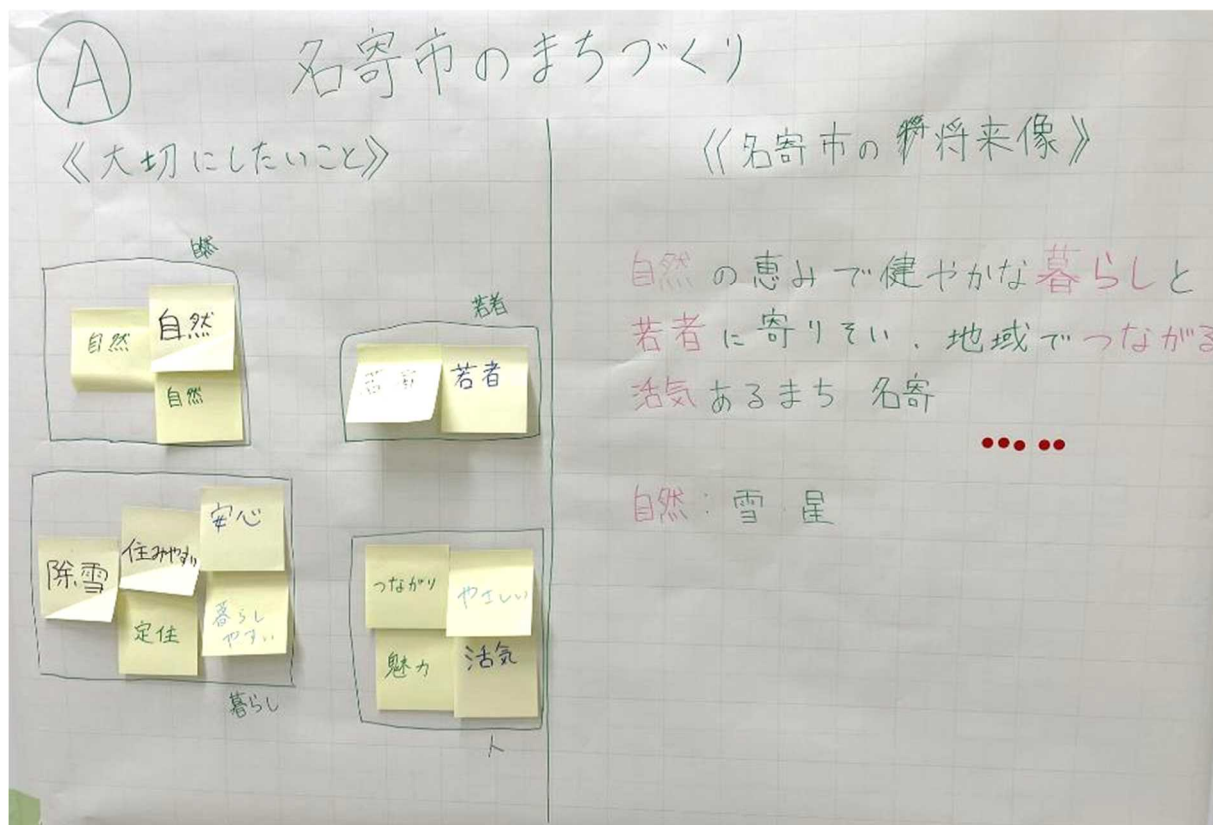 A
名寄市のまちづくり
《大切にしたいこと》
自然
自然
自然
自然
若者
若者
除雪
住みやすい
安心
定住
暮らし
やすい
暮らし
つながり
やさしい
魅力
活気
人
《名寄市の将来像》
自然の恵みで健やかな暮らしと
若者に寄りそい、地域でつながる
活気あるまち 名寄
自然:雪 星